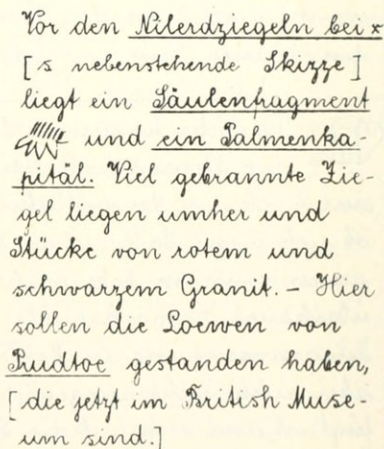 Vor den Nilerdziegeln bei x
[s nebenstehende Skizze]
liegt ein Säulenfragment
und ein Palmenka-
pitäl. Viel gebrannte Zie-
gel liegen umher und
Stücke von rotem und
schwarzem Granit. – Hier
sollen die Loewen von
Prudtoe gestanden haben,
[die jetzt im British Muse-
um sind.]